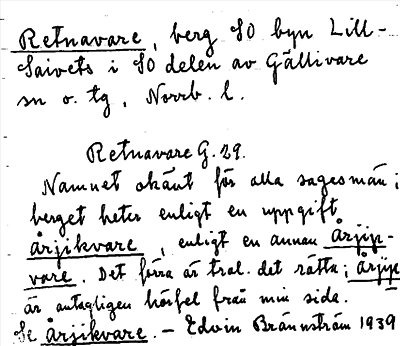 Retnavare, berg SO byn Lill-
Saivets i SO delen av Gällivare
sn o. tg, Norrb. l.
Retnavare G. 29.
Namnet okänt för alla sagesmän;
berget heter enligt en uppgift
årjikvare, enligt en annan årjip-
vare. Det förra är trol. det rätta; årjip
är antagligen hörfel från min sida.
Se årjikvare. – Edvin Brännström 1939